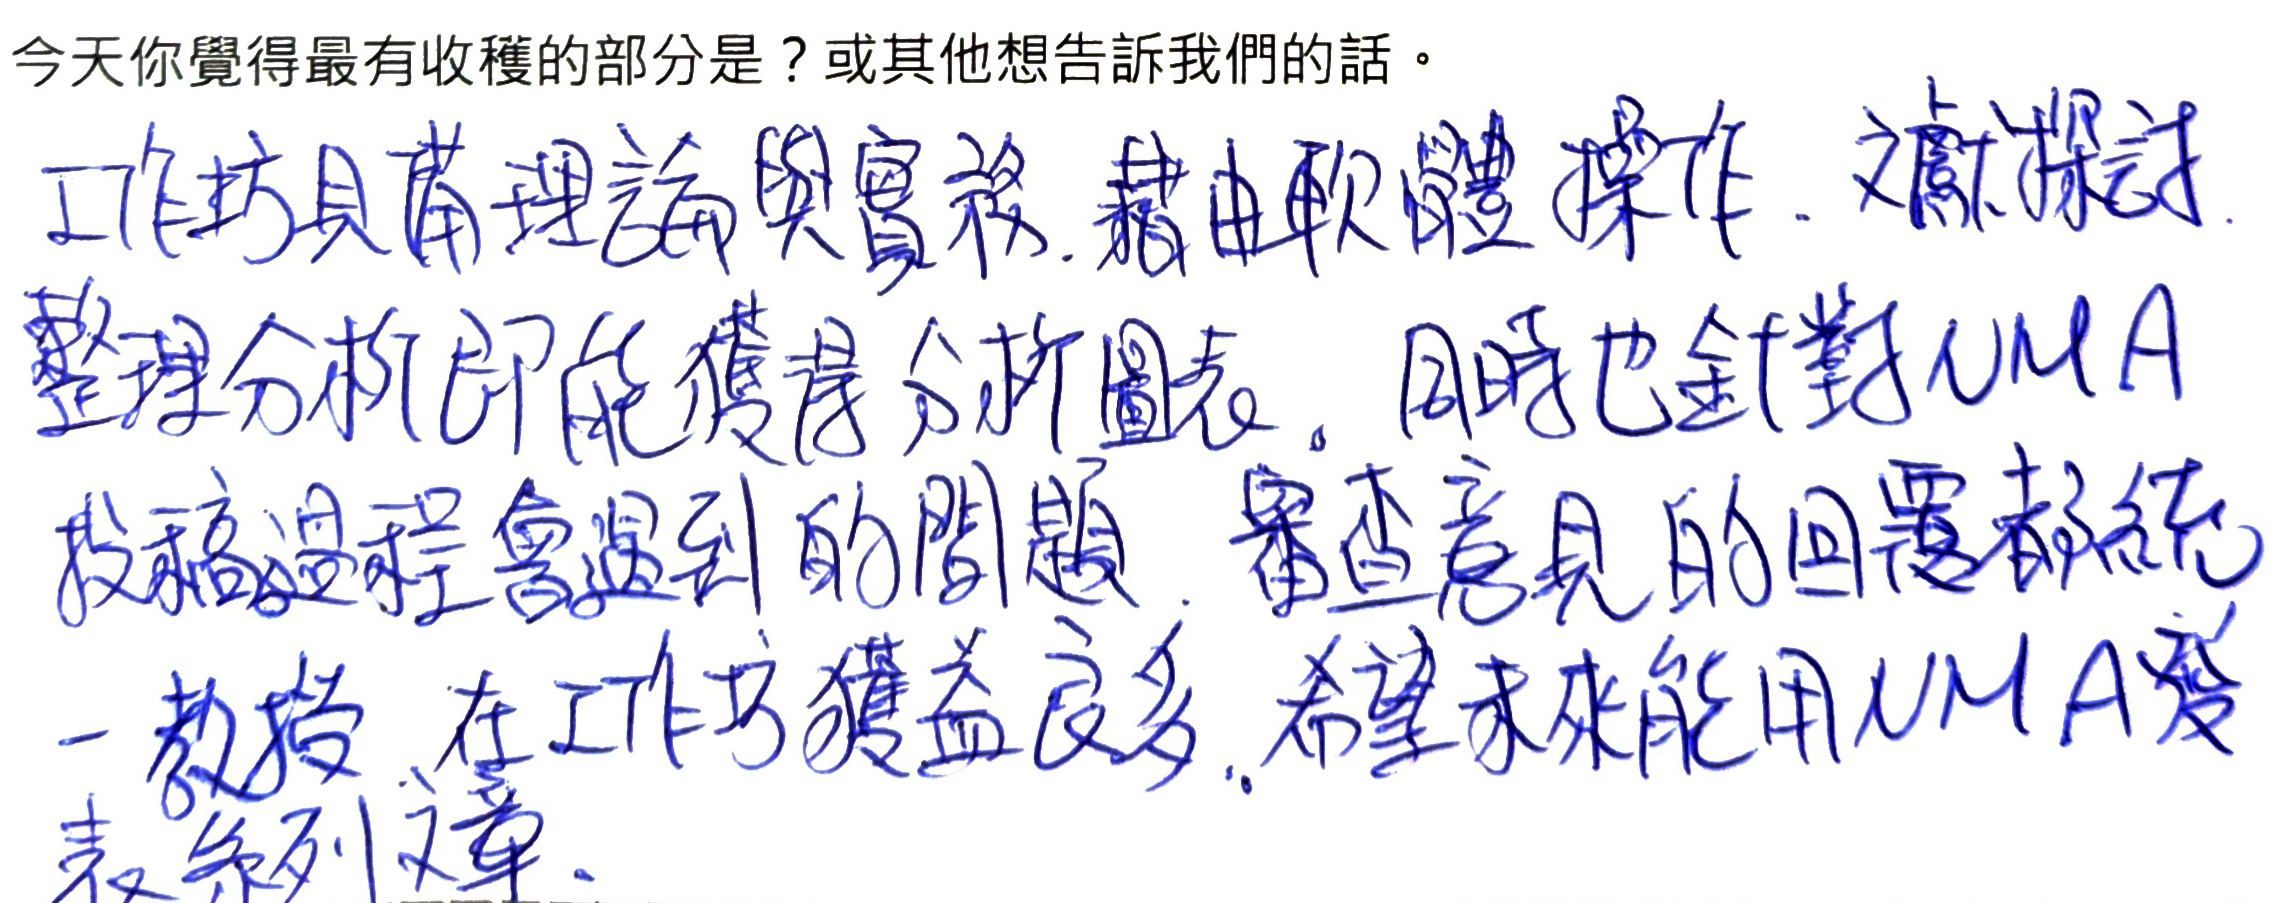 今天你覺得最有收穫的部分是？或其他想告訴我們的話。
工作坊具備理論與實務.藉由軟體操作.文獻探討.
整理分析即能獲得分析圖表。同時也針對NMA
投稿過程會遇到的問題.審查意見的回覆都統
一教授.在工作坊獲益良多.。希望未來能用NMA發
表系列文章.